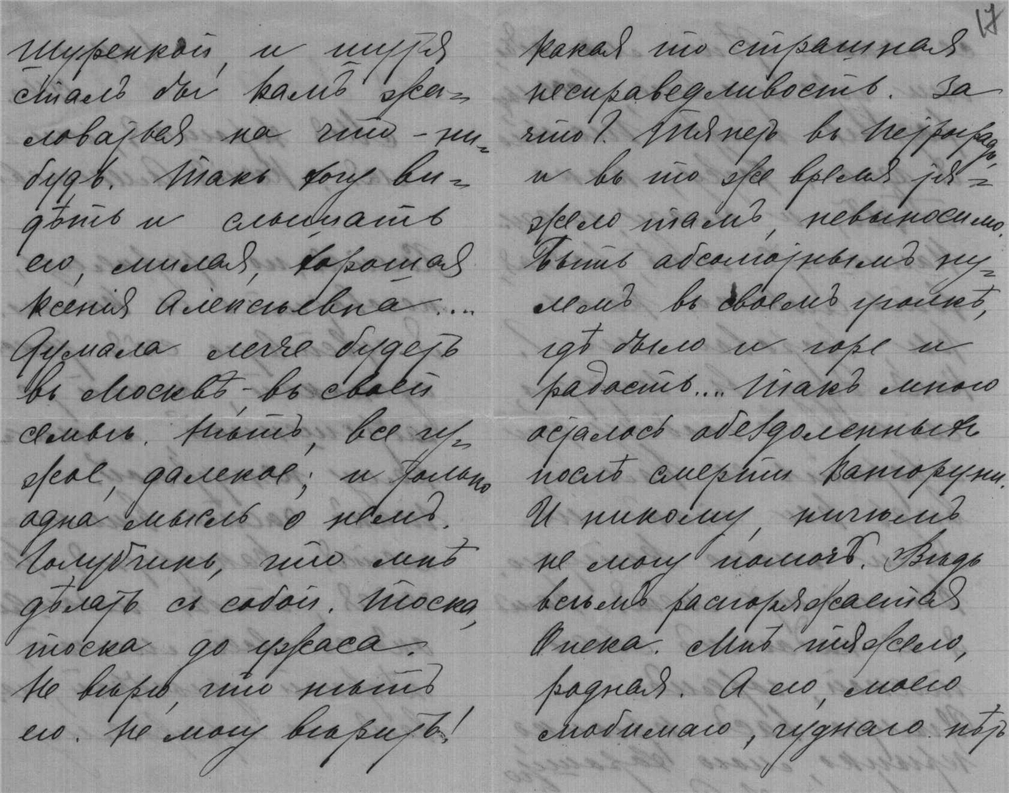 Шуренкой, и шутя
сталъ бы вамъ жа-
ловаться на что-ни-
будь. Такъ хочу ви-
дѣть и слышать
его, милая, хорошая
Ксенія Алексѣевна....
Думала легче будетъ
въ Москвѣ, - въ своей
семьѣ. Нѣтъ, все чу-
жое, далекое; и только
одна мысль о немъ.
Голубчикъ, что мнѣ
дѣлать съ собой. Тоска,
тоска до ужаса.
Не вѣрю, что нѣтъ
его. Не могу вѣрить!
17
Какая то страшная
несправедливость. За
что? Тянетъ въ Петроградъ,
и въ то же время тя-
жело тамъ, невыносимо.
Быть абсолютнымъ ну-
лемъ въ своемъ уголкѣ,
гдѣ было и горе и
радость.... Такъ много
осталось обездоленныхъ
послѣ смерти
И никому, ничѣмъ
не могу помочь. Вѣдь
всѣмъ распоряжается
Опека. Мнѣ тяжело,
родная. А его, моего
любимаго, чуднаго нѣтъ